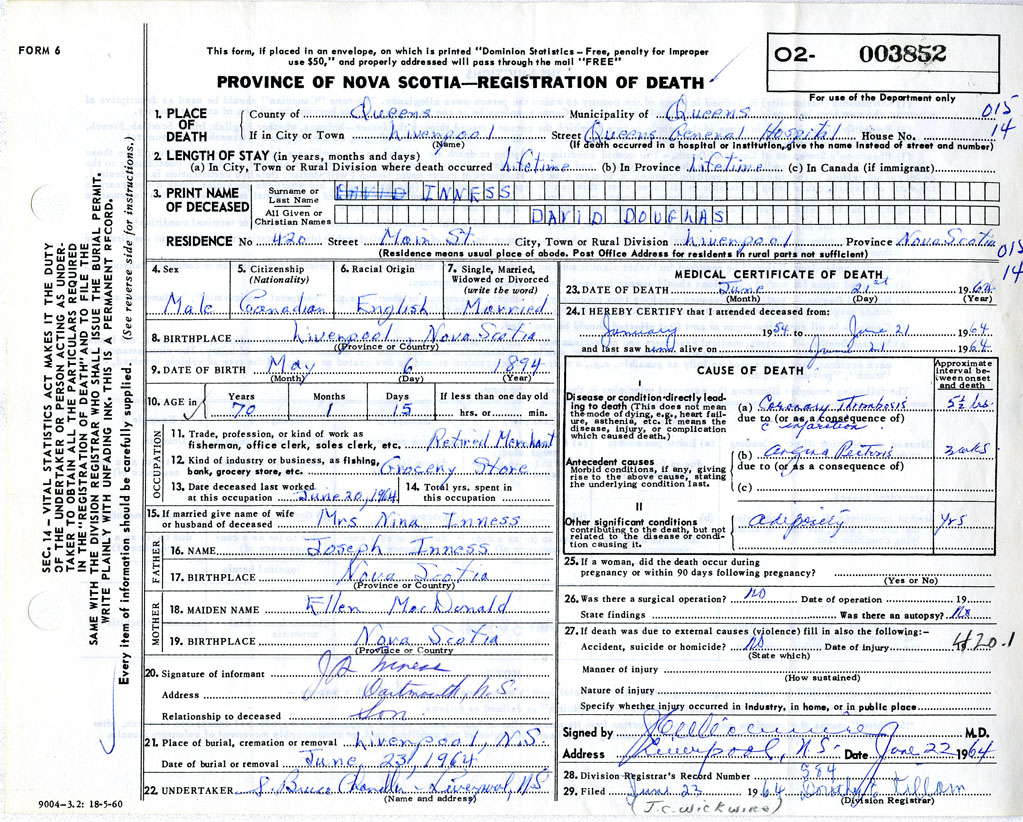 FORM 6
This form, if placed in an envelope, on which is printed "Dominion Statistics – Free, penalty for improper
use $50," and properly addressed will pass through the mail "FREE"
PROVINCE OF NOVA SCOTIA—REGISTRATION OF DEATH
O2- 003852
For use of the Department only
015
14
1. PLACE OF DEATH
County of Queens Municipality of Queens
If in City or Town Liverpool Street Queens General Hospital House No.
(Name) (If death occurred in a hospital or institution, give the name instead of street and number)
2. LENGTH OF STAY (in years, months and days)
(a) In City, Town or Rural Division where death occurred Lifetime (b) In Province Lifetime (c) In Canada (if immigrant)
3. PRINT NAME OF DECEASED
Surname or Last Name DAVID INNESS
All Given or Christian Names DAVID DOUGLAS
RESIDENCE No 420 Street Main St. City, Town or Rural Division Liverpool Province Nova Scotia
(Residence means usual place of abode. Post Office Address for residents in rural parts not sufficient)
015
14
4. Sex
Male
5. Citizenship (Nationality)
Canadian
6. Racial Origin
English
7. Single, Married, Widowed or Divorced (write the word)
Married
8. BIRTHPLACE Liverpool Nova Scotia
(Province or Country)
9. DATE OF BIRTH May 6 1894
(Month) (Day) (Year)
10. AGE in
Years 70
Months 1
Days 15
If less than one day old
hrs. or min.
OCCUPATION
11. Trade, profession, or kind of work as
fisherman, office clerk, sales clerk, etc. Retired Merchant
12. Kind of industry or business, as fishing,
bank, grocery store, etc. Grocery Store
13. Date deceased last worked
at this occupation June 20, 1964
14. Total yrs. spent in
this occupation
15. If married give name of wife
or husband of deceased Mrs Nina Inness
FATHER
16. NAME Joseph Inness
17. BIRTHPLACE Nova Scotia
(Province or Country)
MOTHER
18. MAIDEN NAME Ellen MacDonald
19. BIRTHPLACE Nova Scotia
(Province or Country
20. Signature of informant Inness
Address Dartmouth, N.S.
Relationship to deceased Son
21. Place of burial, cremation or removal Liverpool, N.S.
Date of burial or removal June 23, 1964
22. UNDERTAKER S. Bruce Chandler – Liverpool, N.S.
(Name and address)
9004–3.2: 18-5-60
MEDICAL CERTIFICATE OF DEATH
23. DATE OF DEATH June 21st 1964
(Month) (Day) (Year)
24. I HEREBY CERTIFY that I attended deceased from:
January 1954 to June 21 1964
and last saw him alive on June 21 1964
CAUSE OF DEATH
Approximate interval between onset and death
I
Disease or condition directly leading to death (This does not mean the mode of dying, e.g., heart failure, asthenia, etc. It means the disease, injury, or complication which caused death.)
(a) Coronary Thrombosis 5½ hrs.
due to (or as a consequence of)
c infarction
Antecedent causes
Morbid conditions, if any, giving rise to the above cause, stating the underlying condition last.
(b) Angina Pectoris
due to (or as a consequence of)
(c)
II
Other significant conditions
contributing to the death, but not related to the disease or condition causing it.
adiposity yrs
25. If a woman, did the death occur during
pregnancy or within 90 days following pregnancy?
(Yes or No)
26. Was there a surgical operation? No Date of operation 19
State findings Was there an autopsy? No
27. If death was due to external causes (violence) fill in also the following:–
Accident, suicide or homicide? No Date of injury
(State which)
420.1
Manner of injury
(How sustained)
Nature of injury
Specify whether injury occurred in industry, in home, or in public place
Signed by M.D.
Address Liverpool, N.S. Date June 22 1964
28. Division Registrar's Record Number 384
29. Filed June 23 1964 Dorothy
(J.C. WICKWIRE) (Division Registrar)
SEC. 14 – VITAL STATISTICS ACT MAKES IT THE DUTY
OF THE UNDERTAKER OR PERSON ACTING AS UNDER-
TAKER TO OBTAIN ALL THE PARTICULARS REQUIRED
IN THE "REGISTRATION OF DEATH" AND TO FILE THE
SAME WITH THE DIVISION REGISTRAR WHO SHALL ISSUE THE BURIAL PERMIT.
WRITE PLAINLY WITH UNFADING INK. THIS IS A PERMANENT RECORD.
Every item of information should be carefully supplied. (See reverse side for instructions.)